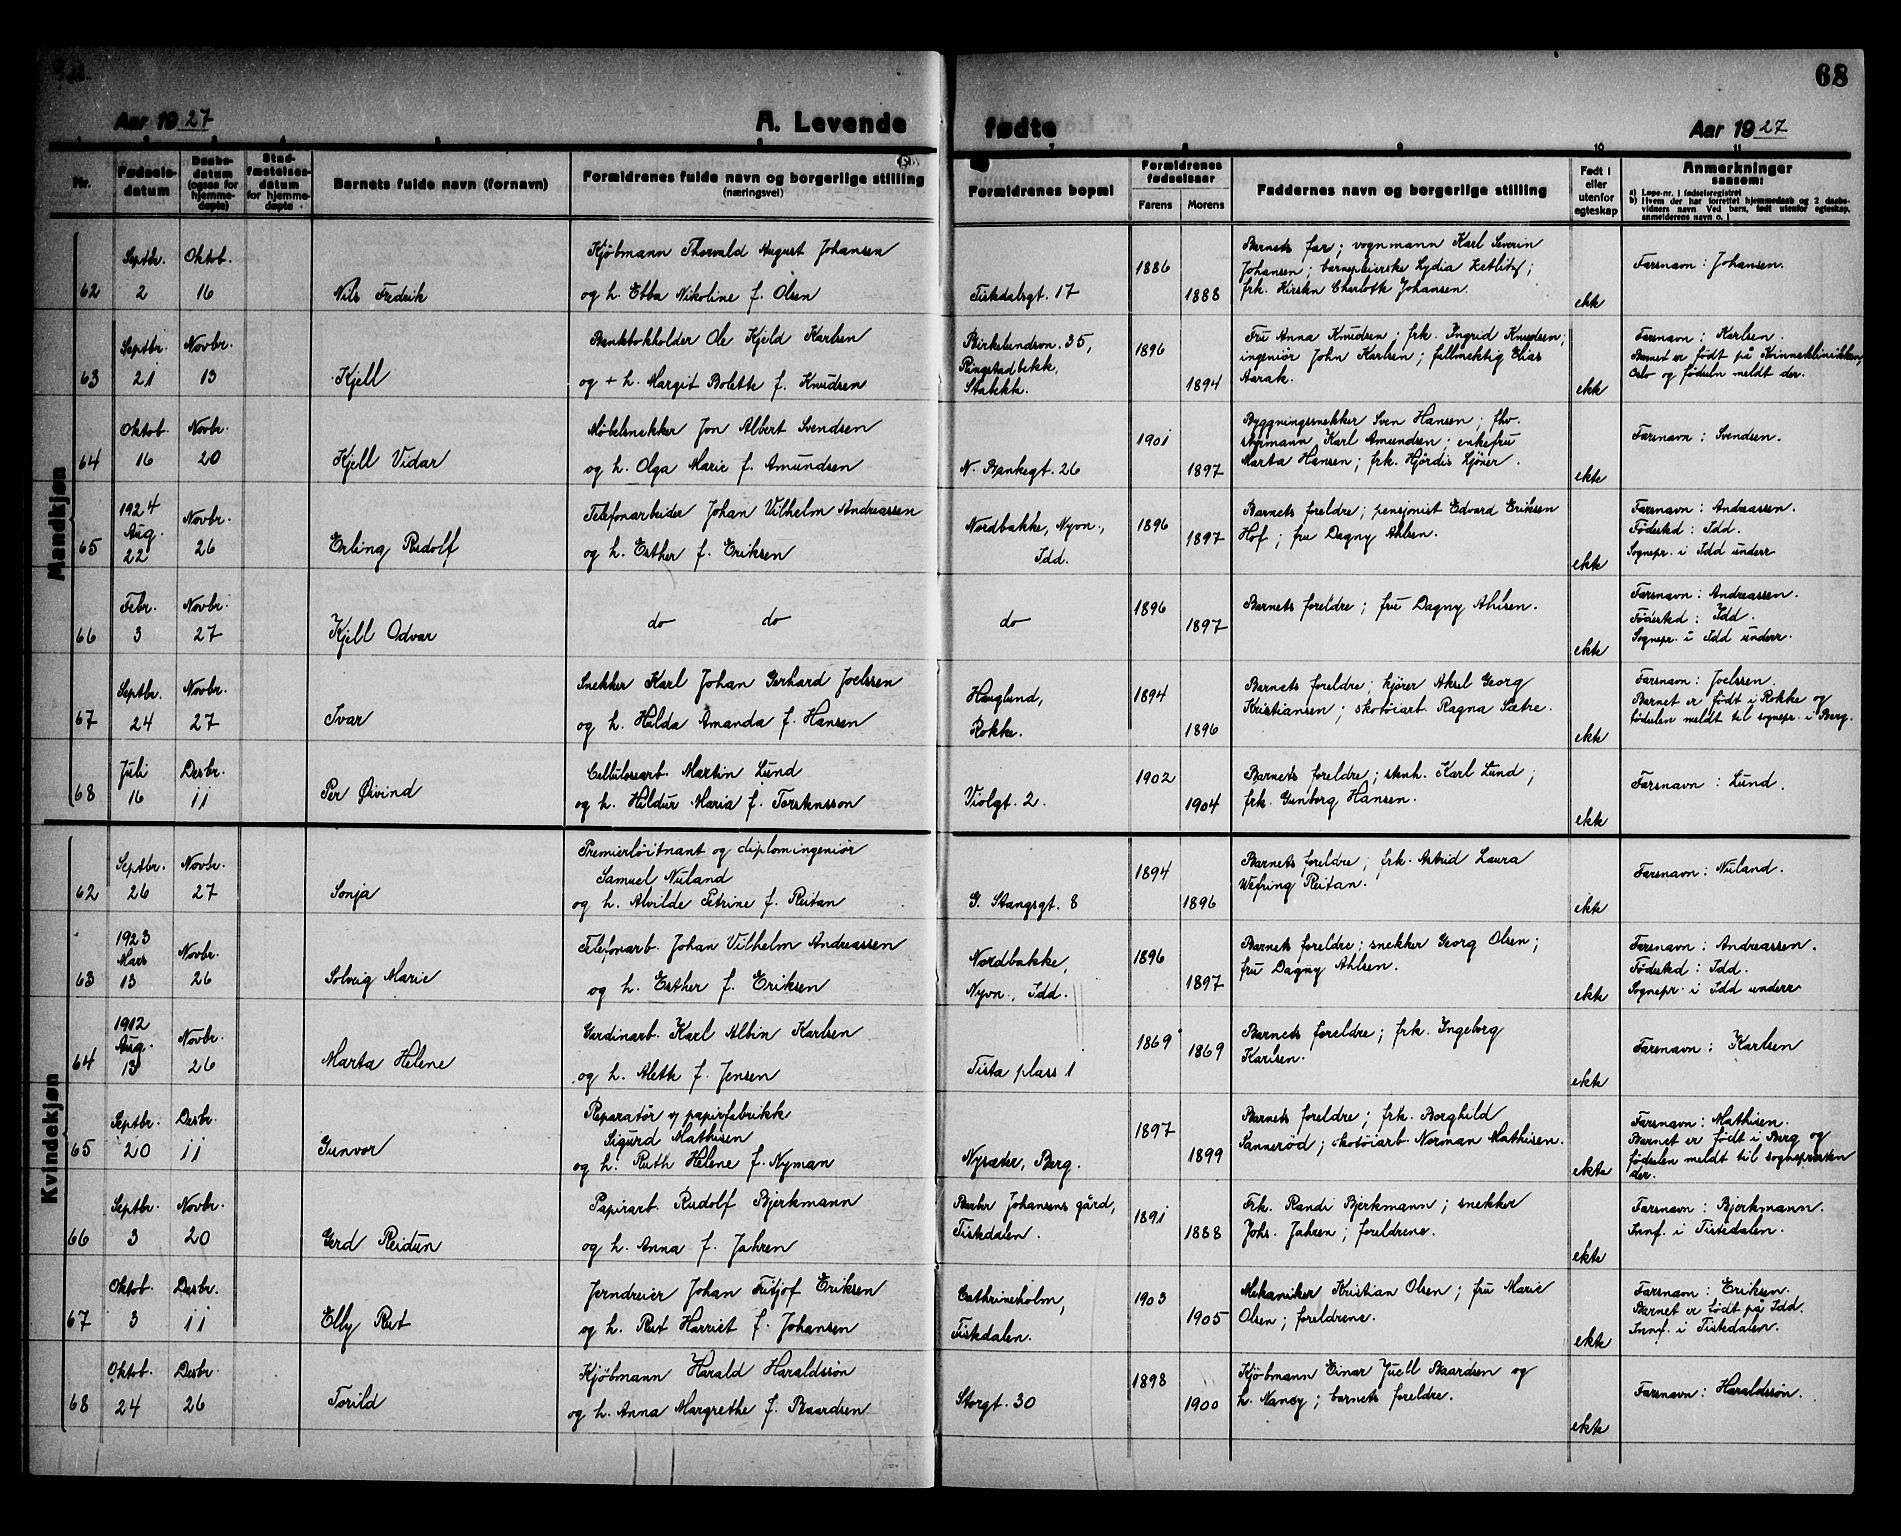 68
Aar 1927
A. Levende
fødte
Aar 1927
Nr.
Fødsels-
datum
Daabs-
datum
(ogsaa for
hjemme-
døpte)
Stad-
fæstelses-
datum
for hjemme-
døpte
Barnets fulde navn (fornavn)
Forældrenes fulde navn og borgerlige stilling
(næringsvei)
7
8
9
10
11
Forældrenes bopæl
Forældrenes
fødselsaar
Farens
Morens
Faddernes navn og borgerlige stilling
Født i
eller
utenfor
egteskap
Anmerkninger
saasom:
a) Løpe-nr. i fødselsregistret
b) Hvem der har forrettet hjemmedaab og 2 daabs-
vidners navn. Ved barn, født utenfor egteskap,
anmelderens navn o. l
Mandkjøn
62
Septbr.
2
Oktob.
16
Nils Fredrik
Kjøbmann Thorvald August Johansen
og h. Ebba Nikoline f. Olsen
Tistedalsgt. 17
1886
1888
Barnets far; vognmann Karl Severin
Johansen; barnepleierske Lydia Ketlitz;
frk. Kirsten Charlotte Johansen.
ekte
Farsnavn: Johansen.
63
Septbr.
21
Novbr.
13
Kjell
Bankbokholder Ole Kjeld Karlsen
og h. Margit Bolette f. Knudsen
Birkelundsvn. 35,
Ringstadbekk,
Stabekk.
1896
1894
Fru Anna Knudsen; frk. Ingrid Knudsen;
ingeniør John Karlsen; fullmektig Elias
Aarak.
ekte
Farsnavn: Karlsen.
Barnet er født på Kvinneklinikken,
Oslo og fødseln meldt der.
64
Oktob.
16
Novbr.
20
Kjell Vidar
Møbelsnekker Jon Albert Svendsen
og h. Olga Marie f. Amundsen
N. Bankegt. 26
1901
1897
Byggningssnekker Sven Hansen; fhv.
styrmann Karl Amundsen; enkefru
Marta Hansen; frk. Hjørdis Ljøner.
ekte
Farsnavn: Svendsen.
65
1924
Aug.
22
Novbr.
26
Erling Rudolf
Telefonarbeider Johan Vilhelm Andreassen
og h. Esther f. Eriksen
Nordbakke, Nyvn.,
Idd.
1896
1897
Barnets foreldre; pensjonist Edvard Eriksen
Hof; fru Dagny Ahlsen.
ekte
Farsnavn: Andreassen.
Fødested: Idd.
Sognepr. i Idd underr
66
Febr.
3
Novbr.
27
Kjell Odvar
do do
do
1896
1897
Barnets foreldre; fru Dagny Ahlsen.
ekte
Farsnavn: Andreassen.
Fødested: Idd.
Sognepr. i Idd underr.
67
Septbr.
24
Novbr.
27
Ivar
Snekker Karl Johan Gerhard Joelssen
og h. Hilda Amanda f. Hansen
Haglund,
Rokke.
1894
1896
Barnets foreldre; kjører Aksel Georg
Kristiansen; skotøiarb. Ragna Sætre.
ekte
Farsnavn: Joelssen.
Barnet er født i Rokke og
fødselen meldt til sognepr. i Berg.
68
Juli
16
Desbr.
11
Per Øivind
Cellulosearb. Martin Lund
og h. Hildur Maria f. Torstensson
Violgt. 2.
1902
1904
Barnets foreldre; stenh. Karl Lund;
frk. Gunborg Hansen.
ekte
Farsnavn: Lund.
Kvindekjøn
62
Septbr.
26
Novbr.
27
Sonja
Premierløitnant og diplomingeniør
Samuel Nuland
og h. Alvilde Petrine f. Reitan
G. Stangsgt. 8
1894
1896
Barnets foreldre; frk. Astrid Laura
Wefring Reitan.
ekte
Farsnavn: Nuland.
63
1923
Mars
13
Novbr.
26
Solveig Marie
Telefonarb. Johan Vilhelm Andreassen
og h. Esther f. Eriksen
Nordbakke,
Nyvn., Idd.
1896
1897
Barnets foreldre; snekker Georg Olsen;
fru Dagny Ahlsen.
ekte
Farsnavn: Andreassen.
Fødested: Idd.
Sognepr. i Idd underr
64
1912
Aug.
13
Novbr.
26
Marta Helene
Gardinarb. Karl Albin Karlsen
og h. Alette f. Jensen
Tista plass 1
1869
1869
Barnets foreldre; frk. Ingeborg
Karlsen.
ekte
Farsnavn: Karlsen
65
Septbr.
20
Desbr.
11
Gunvor
Reparatør v/ papirfabrikk
Sigurd Mathisen
og h. Ruth Helene f. Nyman
Nysæter, Berg.
1897
1899
Barnets foreldre; frk. Borghild
Sannerød; skotøiarb. Norman Mathisen.
ekte
Farsnavn: Mathisen.
Barnet er født i Berg og
fødselen meldt til sognepresten
der.
66
Septbr.
3
Novbr.
20
Gerd Reidun
Papirarb. Rudolf Bjerkmann
og h. Anna f. Jahren
Johansens gård,
Tistedalen.
1891
1888
Frk. Randi Bjerkmann; snekker
Johs. Jahren; foreldrene.
ekte
Farsnavn: Bjerkmann.
Innf. i Tistedalen.
67
Oktob.
3
Desbr.
11
Elly Rut
Jerndreier Johan Fritjof Eriksen
og h. Rut Harriet f. Johansen
Cathrineholm,
Tistedalen.
1903
1905
Mekaniker Kristian Olsen; fru Marie
Olsen; foreldrene.
ekte
Farsnavn: Eriksen.
Barnet er født på Idd.
Innf. i Tistedalen.
68
Oktob.
24
Desbr
26
Torild
Kjøbmann Harald Haraldssøn
og h. Anna Margrethe f. Baardsen
Storgt. 30
1898
1900
Kjøbmann Einar Juell Baardsen og
h. Nancy; barnets foreldre.
ekte
Farsnavn: Haraldssøn.